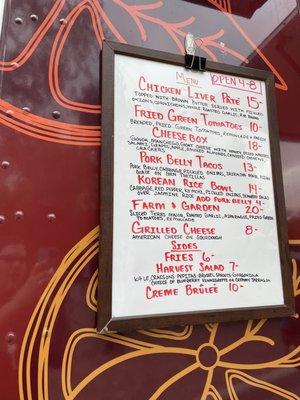 MENU OPEN 4-8
CHICKEN LIVER PATÉ 15-
TOPPED WITH BROWN BUTTER SERVED WITH PICKLED
ONIONS, CORNICHONS, WHOLE ROASTED GARLIC, RW BROWN
FRIED GREEN TOMATOES 10-
BREADED, FRIED GREEN TOMATOES, REMOULADE
CHEESE BOX 18-
GOUDA, GOAT CHEESE WITH HONEY,
SALAMI, GRAPES, APPLE, SMOKED ALMONDS,
CRACKERS
PORK BELLY TACOS 13-
PORK BELLY, CABBAGE, PICKLED ONIONS,
ON CORN TORTILLAS
KOREAN RICE BOWL 14-
CABBAGE, RED PEPPER, KIMCHI, PICKLED ONIONS,
OVER JASMINE RICE ADD PORK BELLY 4-
FARM & GARDEN 20-
SLICED TERES MAJOR, ROASTED GARLIC, ASPARAGUS, FRIED GREEN
TOMATOES, REMOULADE
GRILLED CHEESE 8-
AMERICAN CHEESE ON SOURDOUGH
SIDES
FRIES 6-
HARVEST SALAD 7-
KALE, CRAISINS, PEPITAS, BRUSSEL SPROUTS, GORGONZOLA
CHOICE OF BLUEBERRY VINAIGRETTE OR CREAMY TARRAGON
CREME BRÛLEE 10-